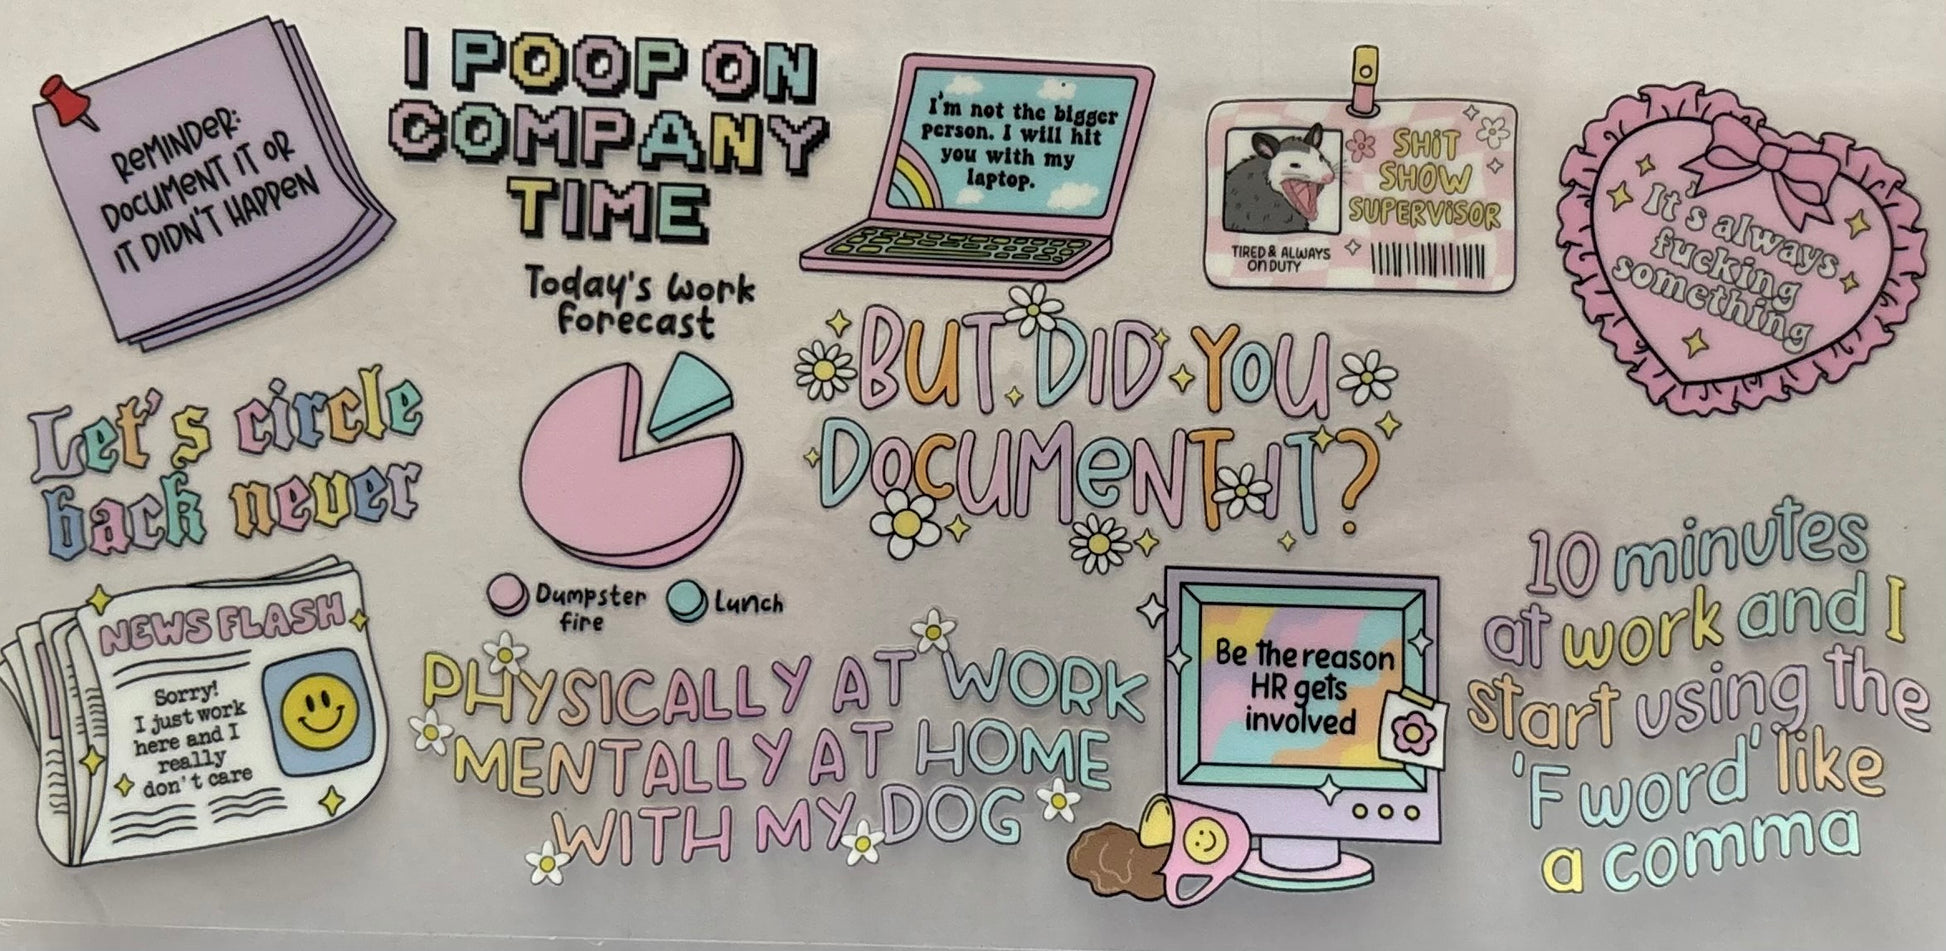 REMINDER:
DOCUMENT IT OR
IT DIDN'T HAPPEN
I POOP ON
COMPANY
TIME
I'm not the bigger
person. I will hit
you with my
laptop.
SHiT
SHOW
SUPERViSOR
TIRED & ALWAYS
ON DUTY
It's always
fucking
something
Let's circle
back never
Today's work
forecast
Dumpster
fire
Lunch
BUT DID YOU
DOCUMENT IT?
NEWS FLASH
Sorry!
I just work
here and I
really
don't care
PHYSICALLY AT WORK
MENTALLY AT HOME
WITH MY DOG
Be the reason
HR gets
involved
10 minutes
at work and I
start using the
'F word' like
a comma